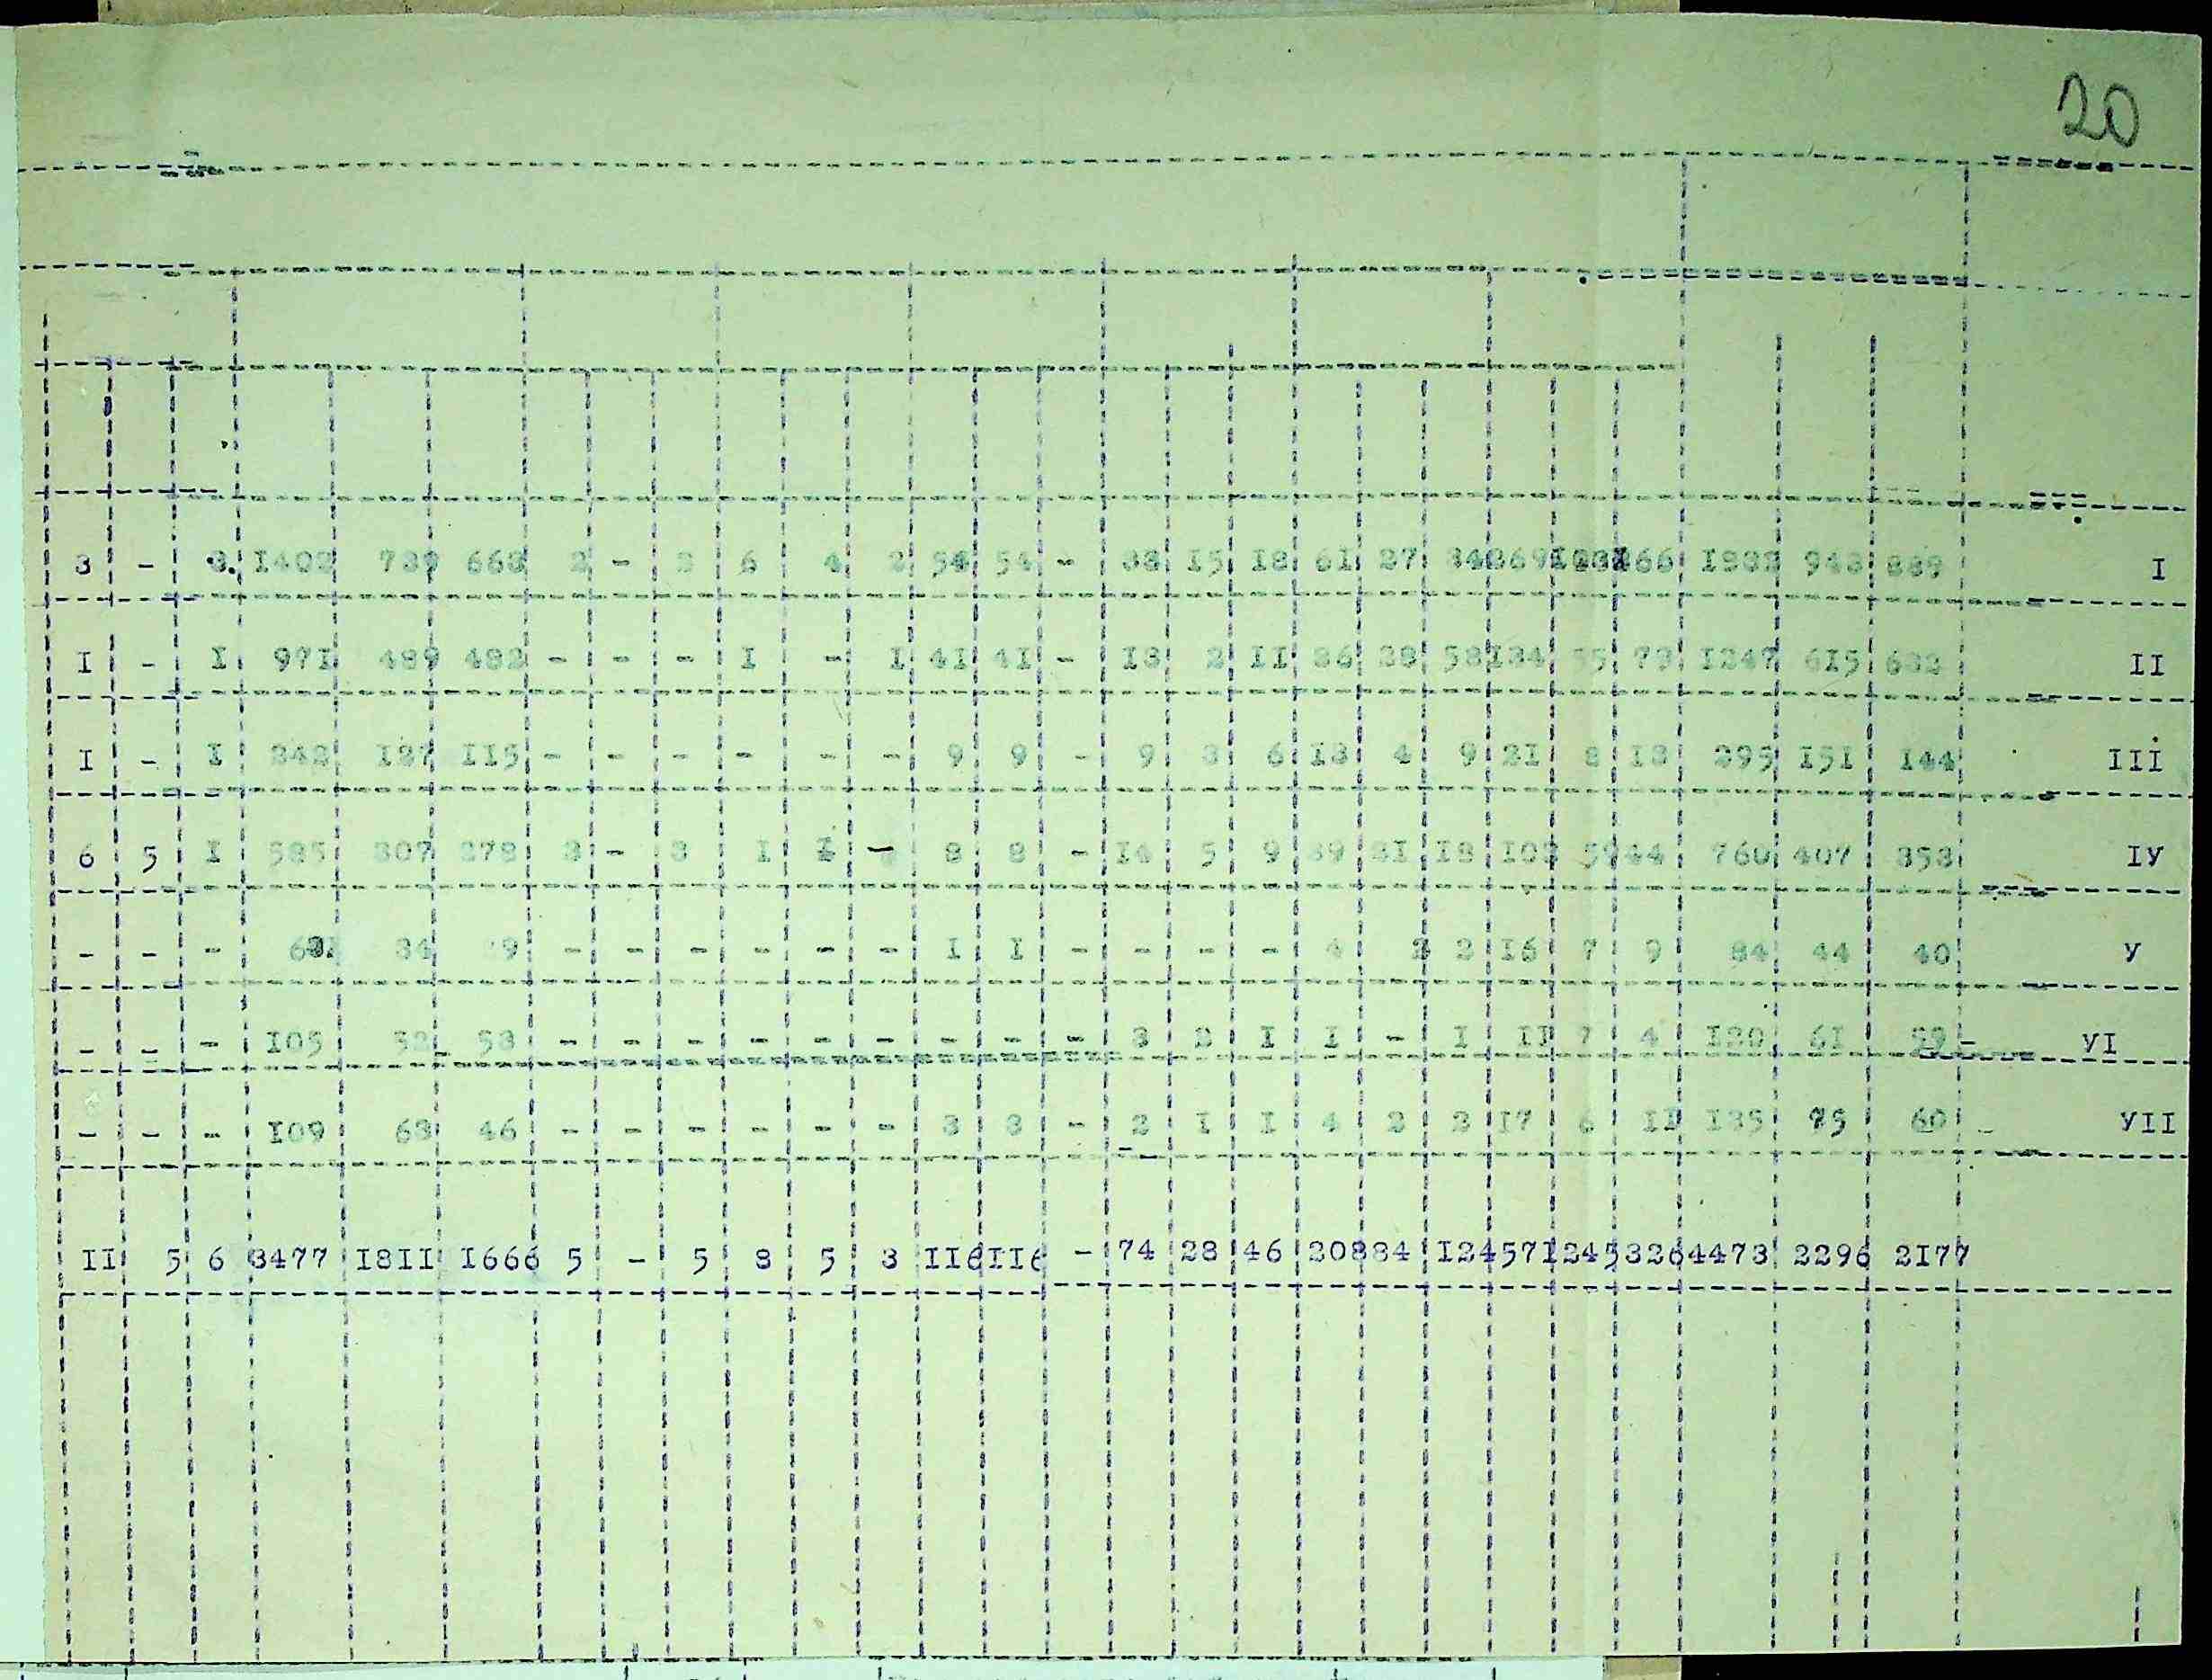 20
3 - 3 I402 739 663 2 - 2 6 4 2 54 54 - 33 I5 I8 6I 27 34 269 I03 I66 I832 943 889 I
I - I 97I 489 482 - - - I - I 4I 4I - I3 2 II 86 28 58 I34 55 79 I247 6I5 632 II
I - I 242 I27 II5 - - - - - - 9 9 - 9 3 6 I3 4 9 2I 8 I3 295 I5I I44 III
6 5 I 585 307 278 3 - 3 I I - 8 8 - I4 5 9 39 2I I8 I03 59 44 760 407 353 IУ
- - - 63 34 9 - - - - - - I I - - - - 4 2 2 I6 7 9 84 44 40 У
- - - I05 52 53 - - - - - - - - - 3 2 I I - I II 7 4 I20 6I 59 УI
- - - I09 63 46 - - - - - - 3 3 - 2 I I 4 2 2 I7 6 II I35 75 60 УII
II 5 6 3477 I8II I666 5 - 5 8 5 3 II6 II6 - 74 28 46 208 84 I24 57I 245 326 4473 2296 2177